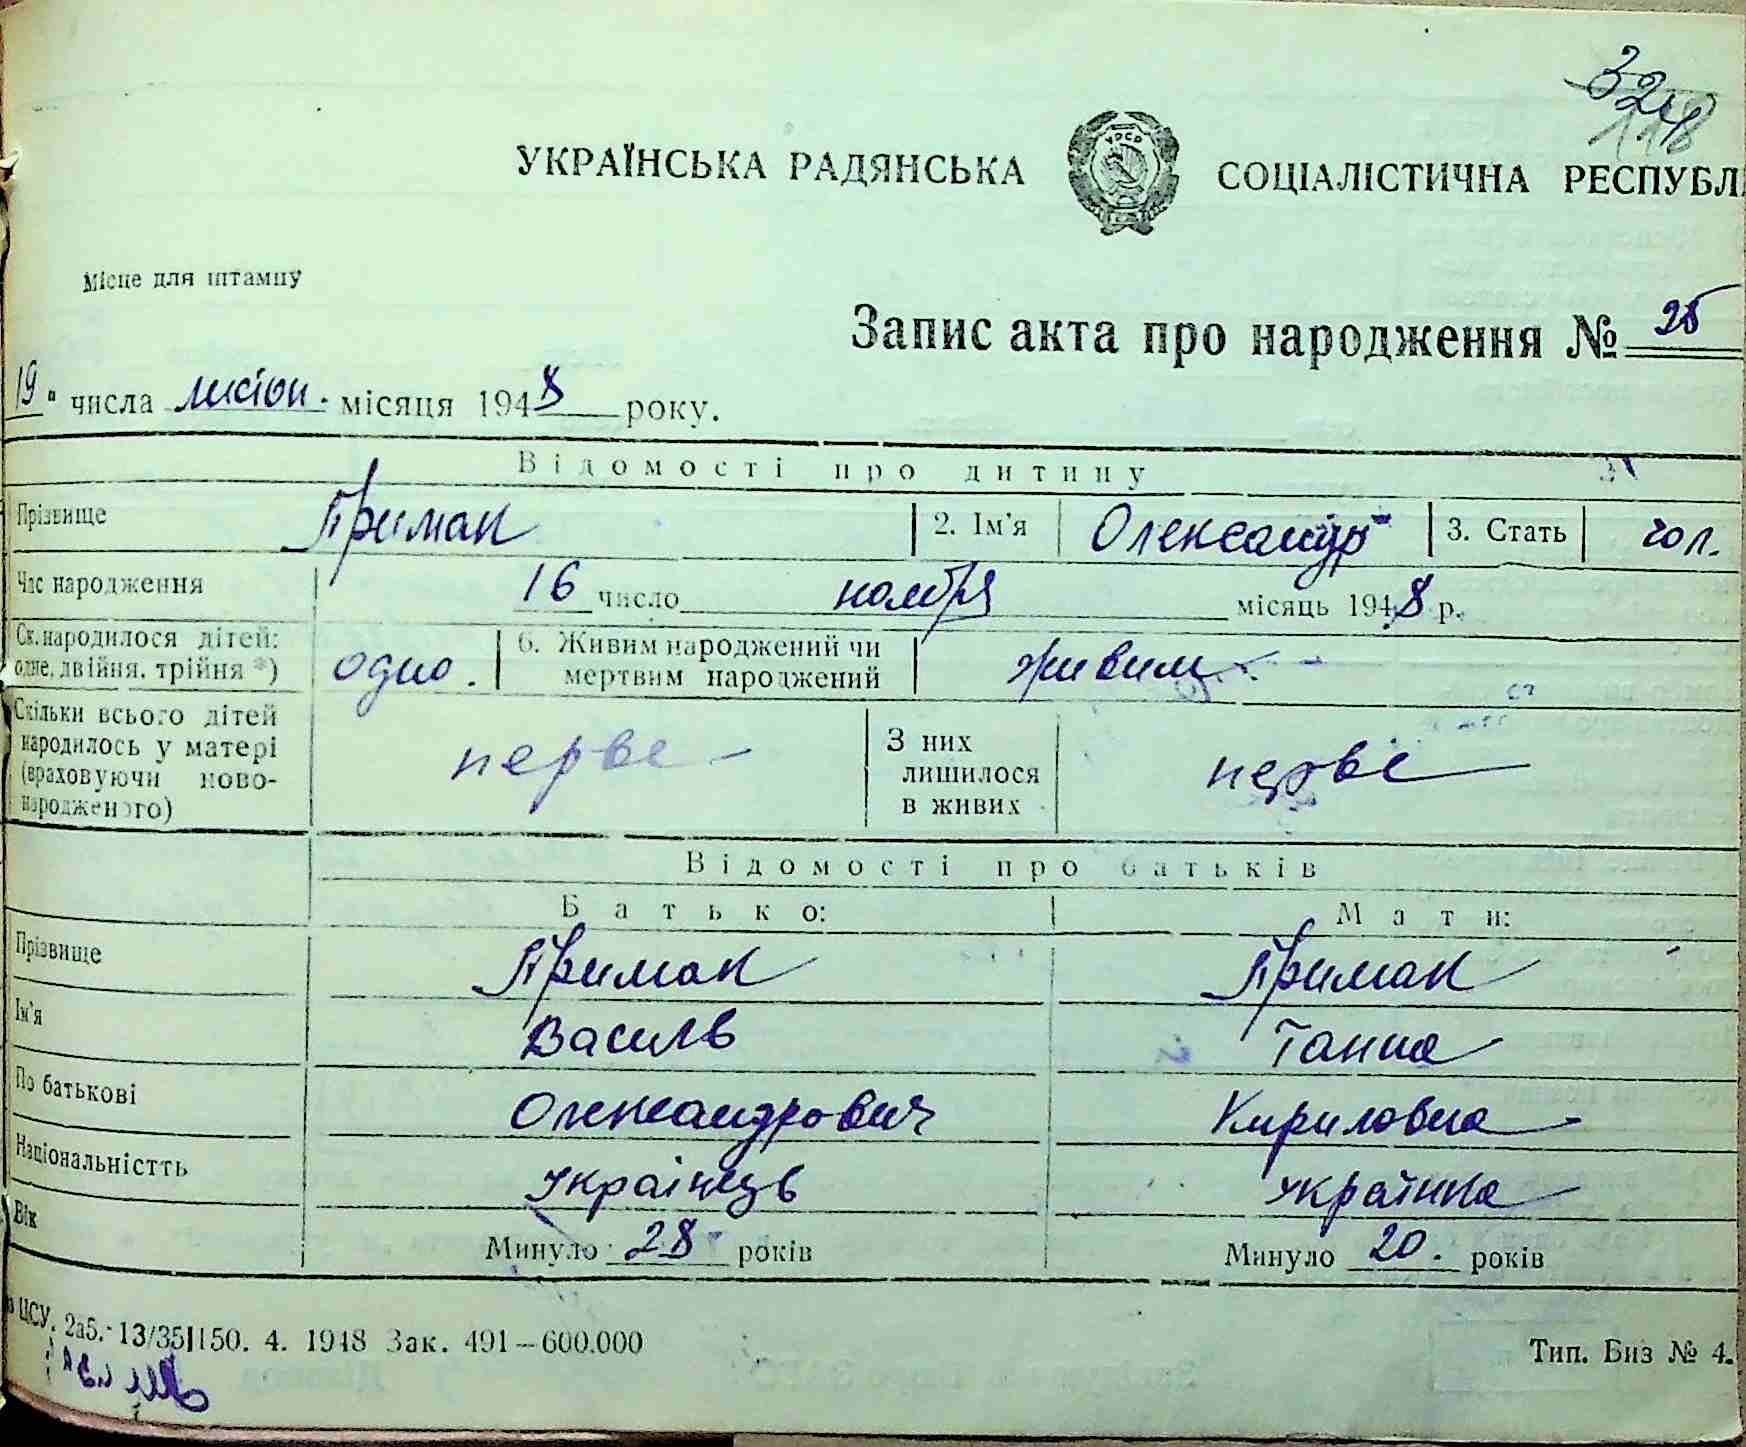 324
118
УКРАЇНСЬКА РАДЯНСЬКА СОЦІАЛІСТИЧНА РЕСПУБЛ
УРСР
Місце для штампу
Запис акта про народження № 25
19 " числа листоп. місяця 1948 року.
Відомості про дитину
Прізвище Примак 2. Ім'я Олександр 3. Стать чол.
Час народження 16 число ноября місяць 1948 р.
Ск. народилося дітей: одне, двійня, трійня *) одно. 6. Живим народжений чи мертвим народжений живим
Скільки всього дітей народилось у матері (враховуючи ново-народженого) перве З них лишилося в живих перве
Відомості про батьків
Батько: Мати:
Прізвище Примак Примак
Ім'я Василь Ганна
По батькові Олександрович Кириловна
Національністть Українець Українка
Вік Минуло 28 років Минуло 20. років
ЦСУ. 2а5.-13/35|150. 4. 1948 Зак. 491—600.000 Тип. Биз № 4.